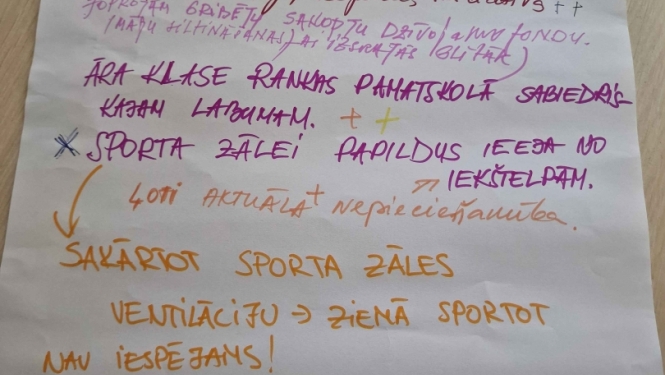 ++
JOPROJĀM GRIBĒTU SAKOPTU DZĪVOJAMO FONDU.
(MĀJU SILTINĀŠANAS)
ĀRA KLASE RANKAS PAMATSKOLĀ SABIEDRIS-
KAJAM LABUMAM. + +
* SPORTA ZĀLEI PAPILDUS IEEJA NO
IEKŠTELPĀM.
ĻOTI AKTUĀLA + nepieciešamība.
SAKĀRTOT SPORTA ZĀLES
VENTILĀCIJU → ZIEMĀ SPORTOT
NAV IESPĒJAMS!